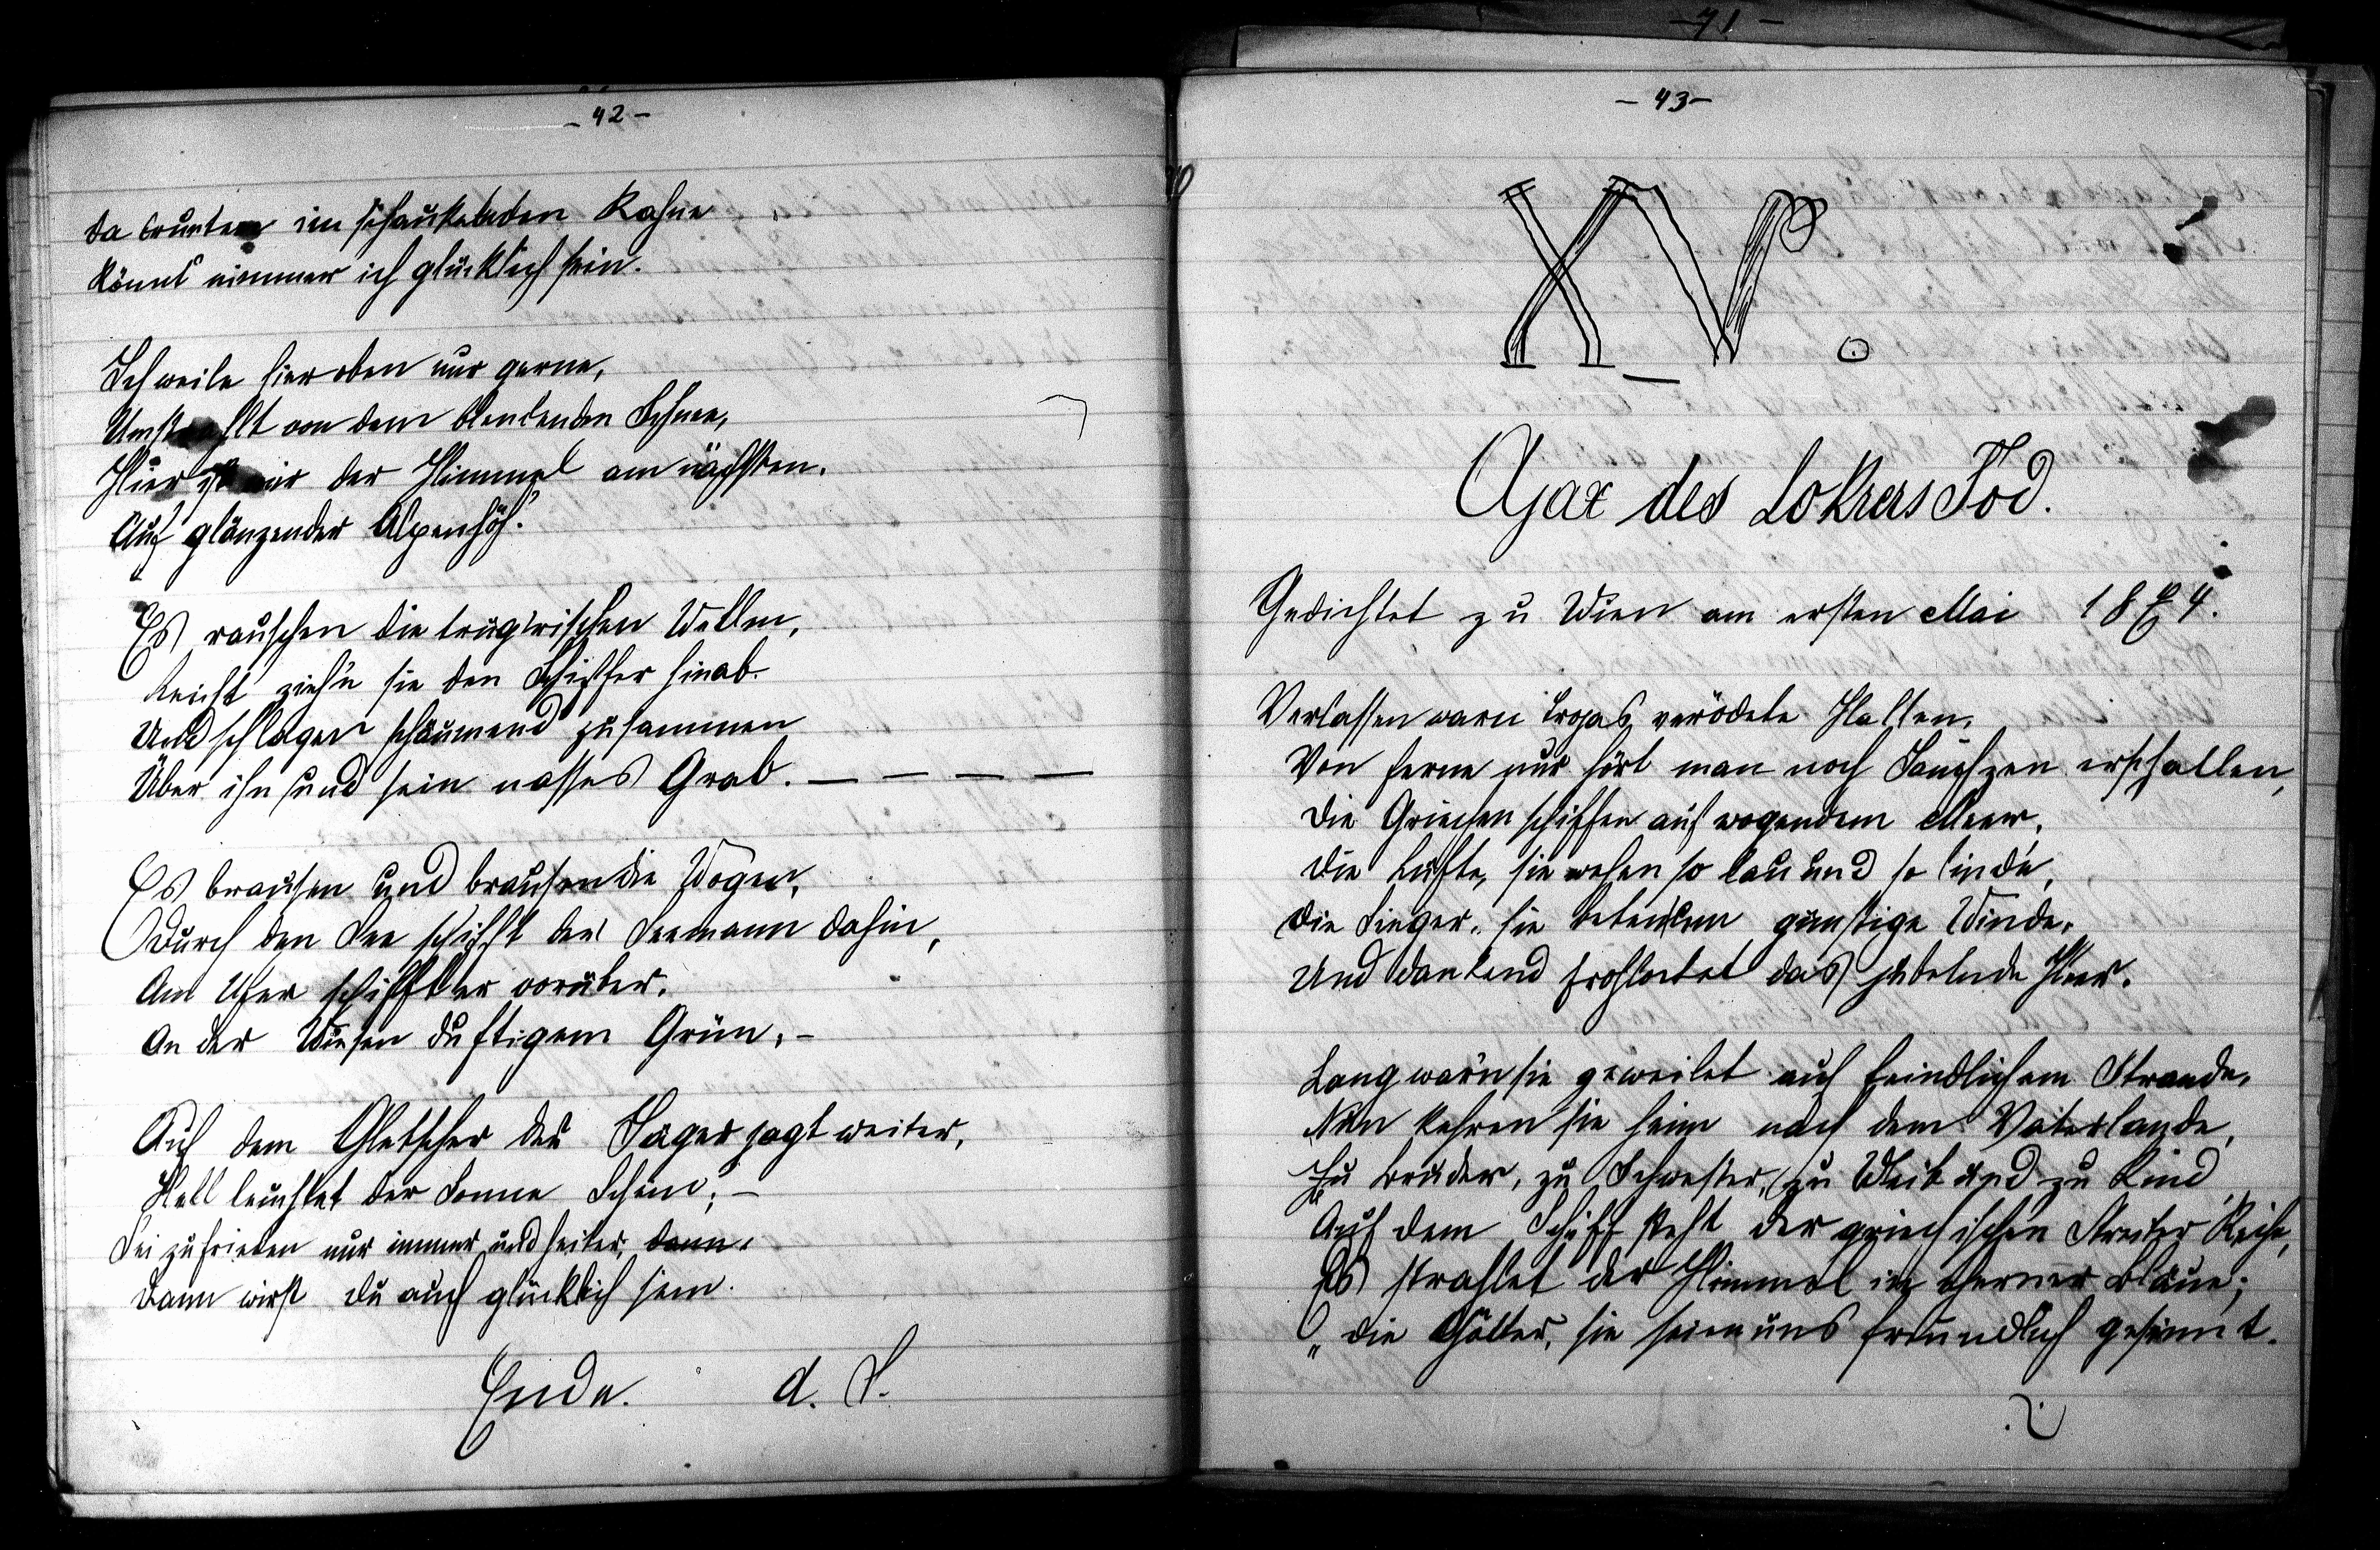 - 42 -
da drunten im schaukelnden Kahne
könnt' nimmer ich glücklich sein.
Ich weile hier oben nur gerne,
Umstrahlt von dem blendenden Schnee,
Hier ist mir der Himmel am nächsten,
Auf glänzender Alpenhöh'.
Es rauschen die trügrischen Wellen,
Leicht zieh'n sie den Schiffer hinab
Und schlagen schäumend zusammen
Über ihn und sein nasses Grab. — — — —
Es brausen und brausen die Wogen,
Durch den See schifft der Seemann dahin,
Am Ufer schifft er vorüber,
An der Wiesen duftigem Grün; -
Auf dem Gletscher der Jäger jagt weiter,
Hell leuchtet der Sonne Schein; -
Sei zufrieden nur immer und heiter, dann,
Dann wirst du auch glücklich sein.
Ende. A. S.
- 71 -
- 43 -
XV.
Ajax des Lokrers Tod.
Gedichtet zu Wien am ersten Mai 1874.
Verlassen warn Trojas verödete Hallen,
Von ferne nur hört man noch Jauchzen erschallen,
Die Griechen schiffen auf wogendem Meer,
Die Lüfte, sie wehen so lau und so linde,
Die Sieger, sie beten um günstige Winde,
Und dankend frohlocket das jubelnde Heer.
Lang warn sie geweilet auf feindlichem Strande,
Nun kehren sie heim nach dem Vaterlande,
Zu Bruder, zu Schwester, zu Weib und zu Kind
Auf dem Schiff steht der griechischen Streiter Reihe,
Es strahlet der Himmel in Bläue;
„O die Götter, sie seien uns freundlich gesinnt.